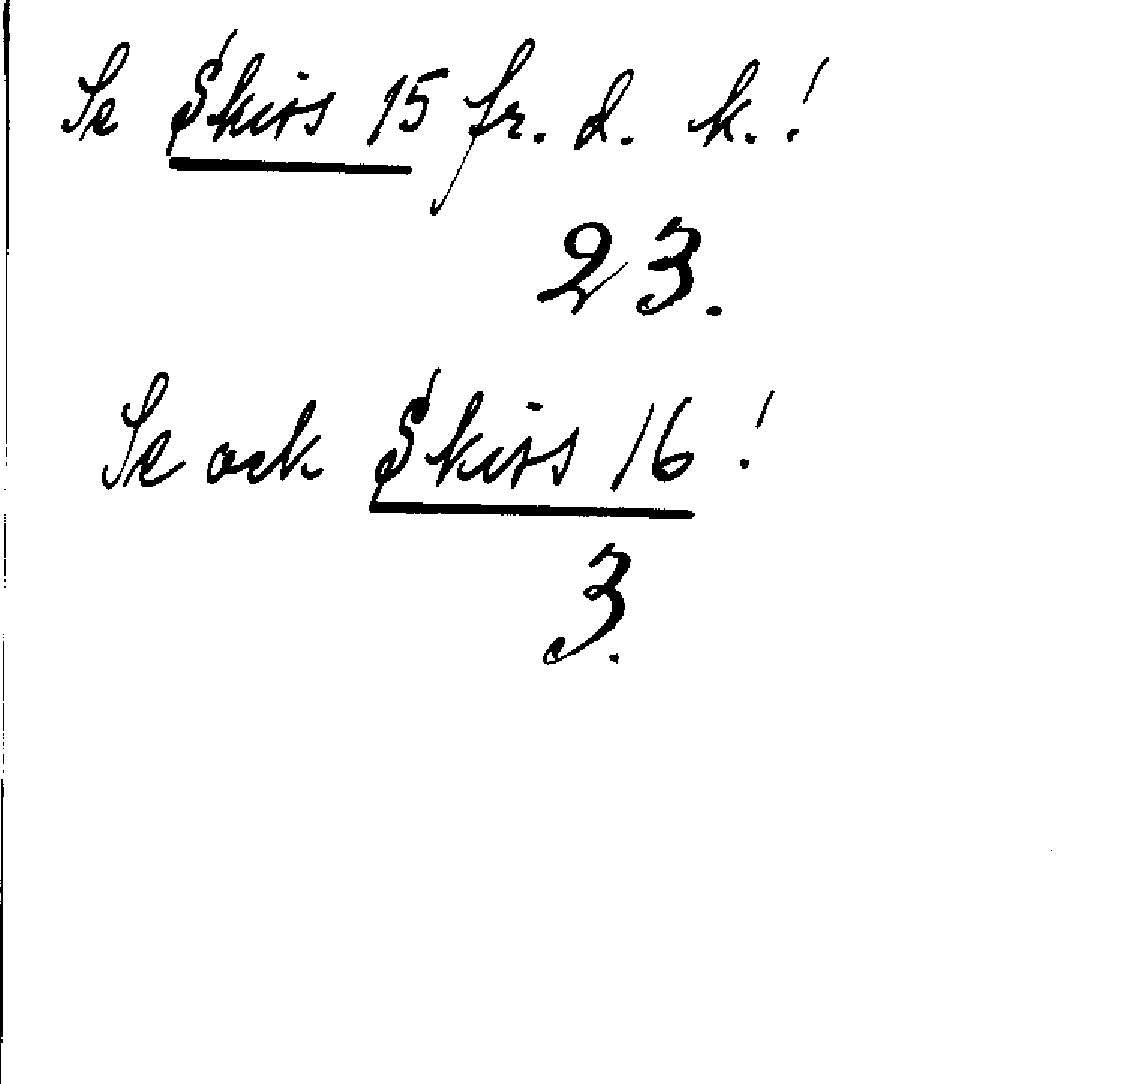 Se Skirs 15 fr. d. k.!
23.
Se ock Skirs 16!
3.